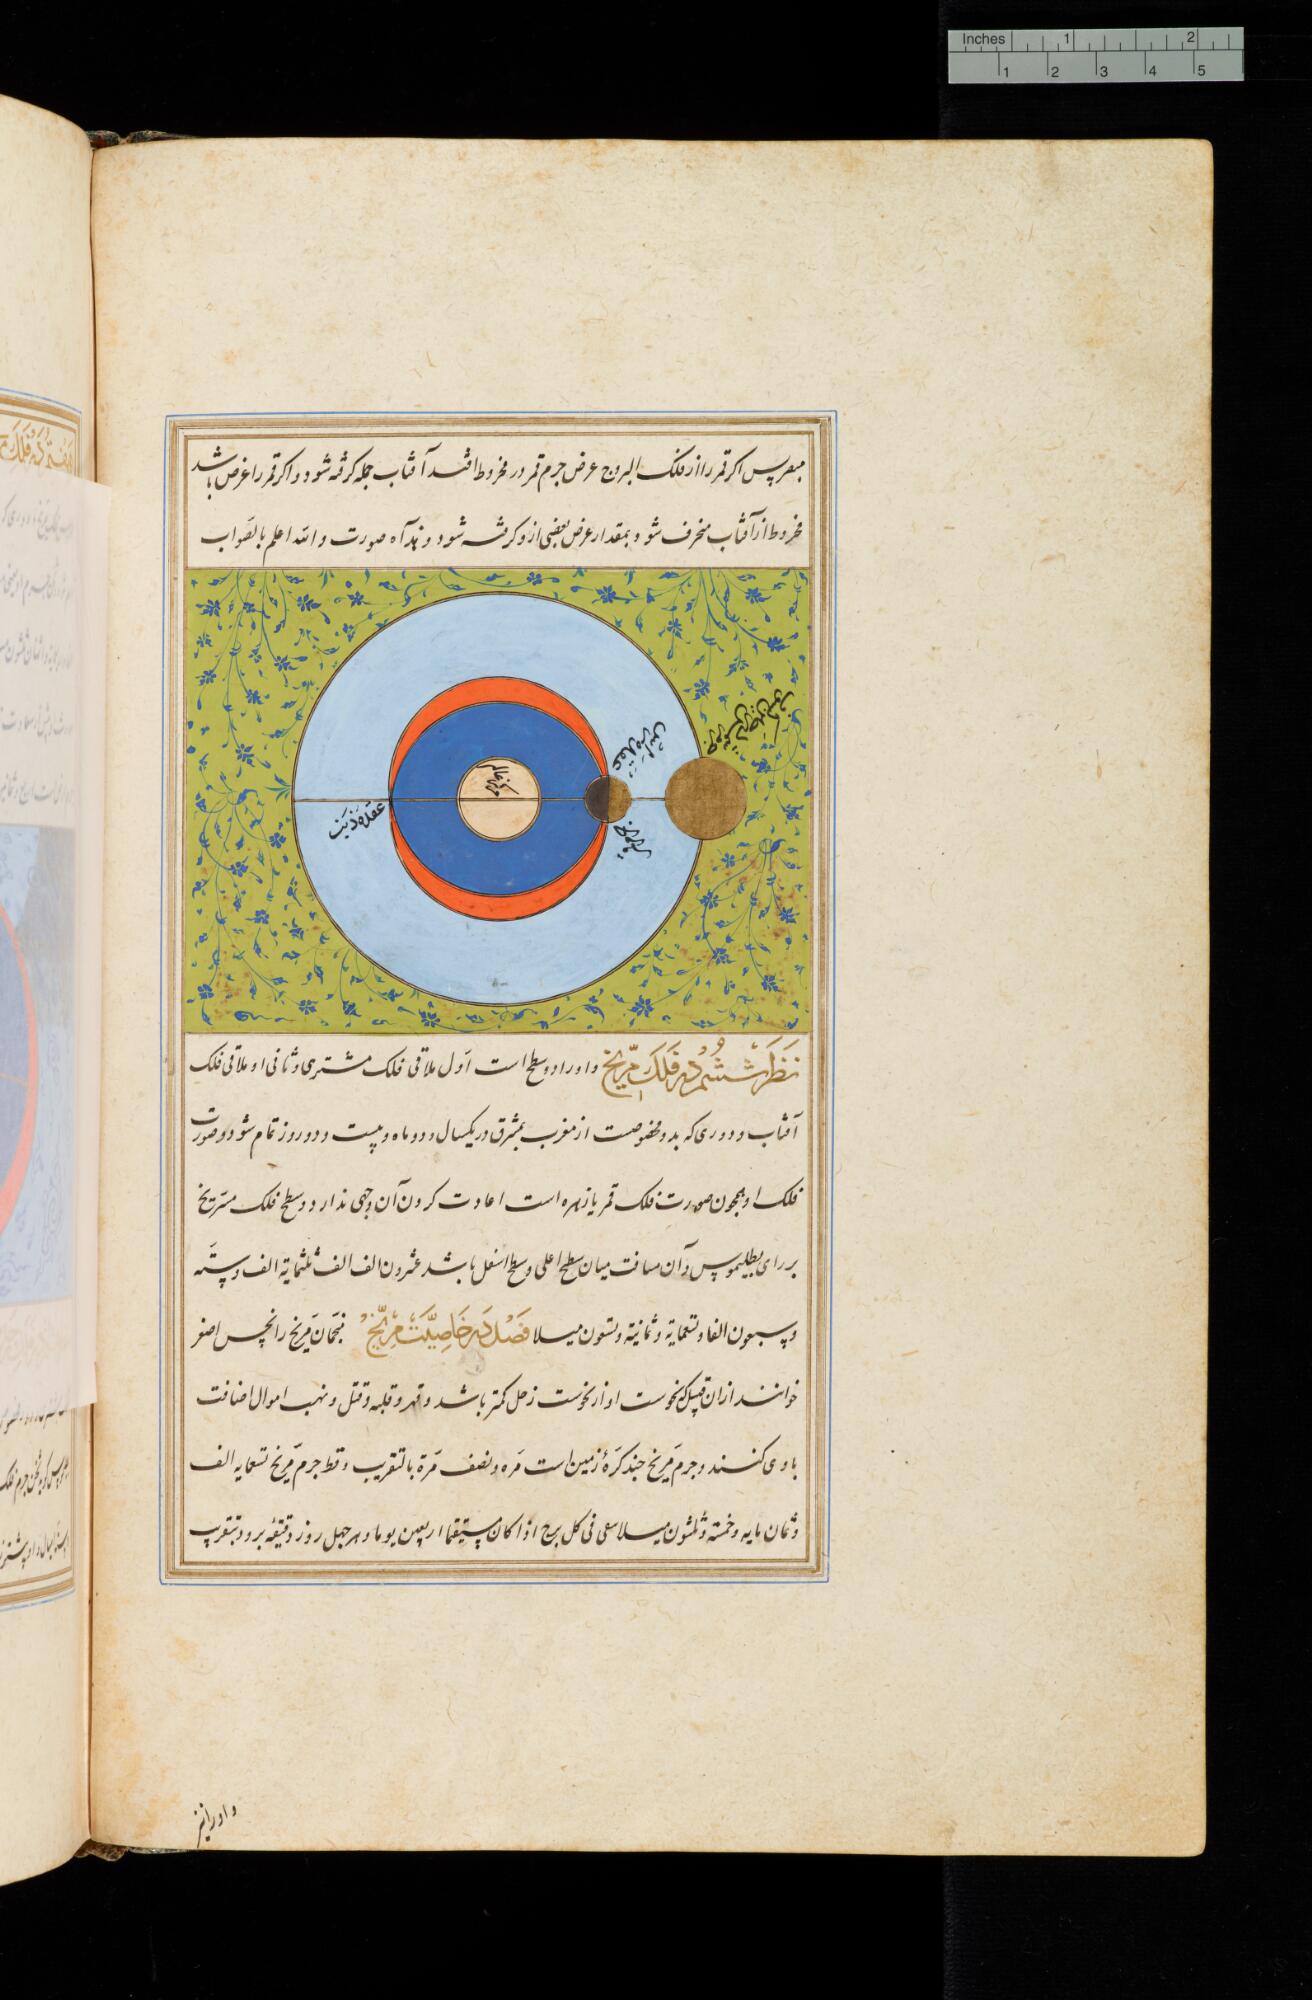 Inches 1 2
1 2 3 4 5
مبصر پس اگر قمر را از فلک البروج عرض جرم قمر در مخروط افتد آفتاب جمله گرفته شود و اگر قمر را عرض باشد
مخروط از آفتاب منحرف شود و بمقدار عرض بعضی ازو گرفته شود و هذه صورت والله اعلم بالصواب
عقده ذنب
نظر ششم در فلک مریخ و او را دو سطح است اول ملاقی فلک مشتری و ثانی او ملاقی فلک
آفتاب و دوری که بدو مخصوصست از مغرب بمشرق در یکسال و دو ماه و بیست و دو روز تمام شود و صورت
فلک او همچون صورت فلک قمر یا زهره است اعادت کردن آن وجهی ندارد و سطح فلک مریخ
بر رای بطلیموس و آن مسافت میان سطح اعلی و سطح اسفل باشد عشرون الف الف ثلثمایة الف و ستة
و سبعون الفا و تسعمایة و ثمانیة و تسعون میلا فصل در خاصیت مریخ منجمان مریخ را نحس اصغر
خوانند از ان قبیل که نحوست او از نحوست زحل کمتر باشد و قهر و غلبه و قتل و نهب اموال اضافت
باوی کنند و جرم مریخ چند کرهٔ زمین است مرة و نصف مرة بالتقریب و قطر جرم مریخ تسعمایه الف
و ثمان مایه و خمسة و ثلثون میلا سقی فی کل برج اذا کان مستقیما اربعین یوما و هر چهل روز دقیقه برود بتقریب
و او را نیز